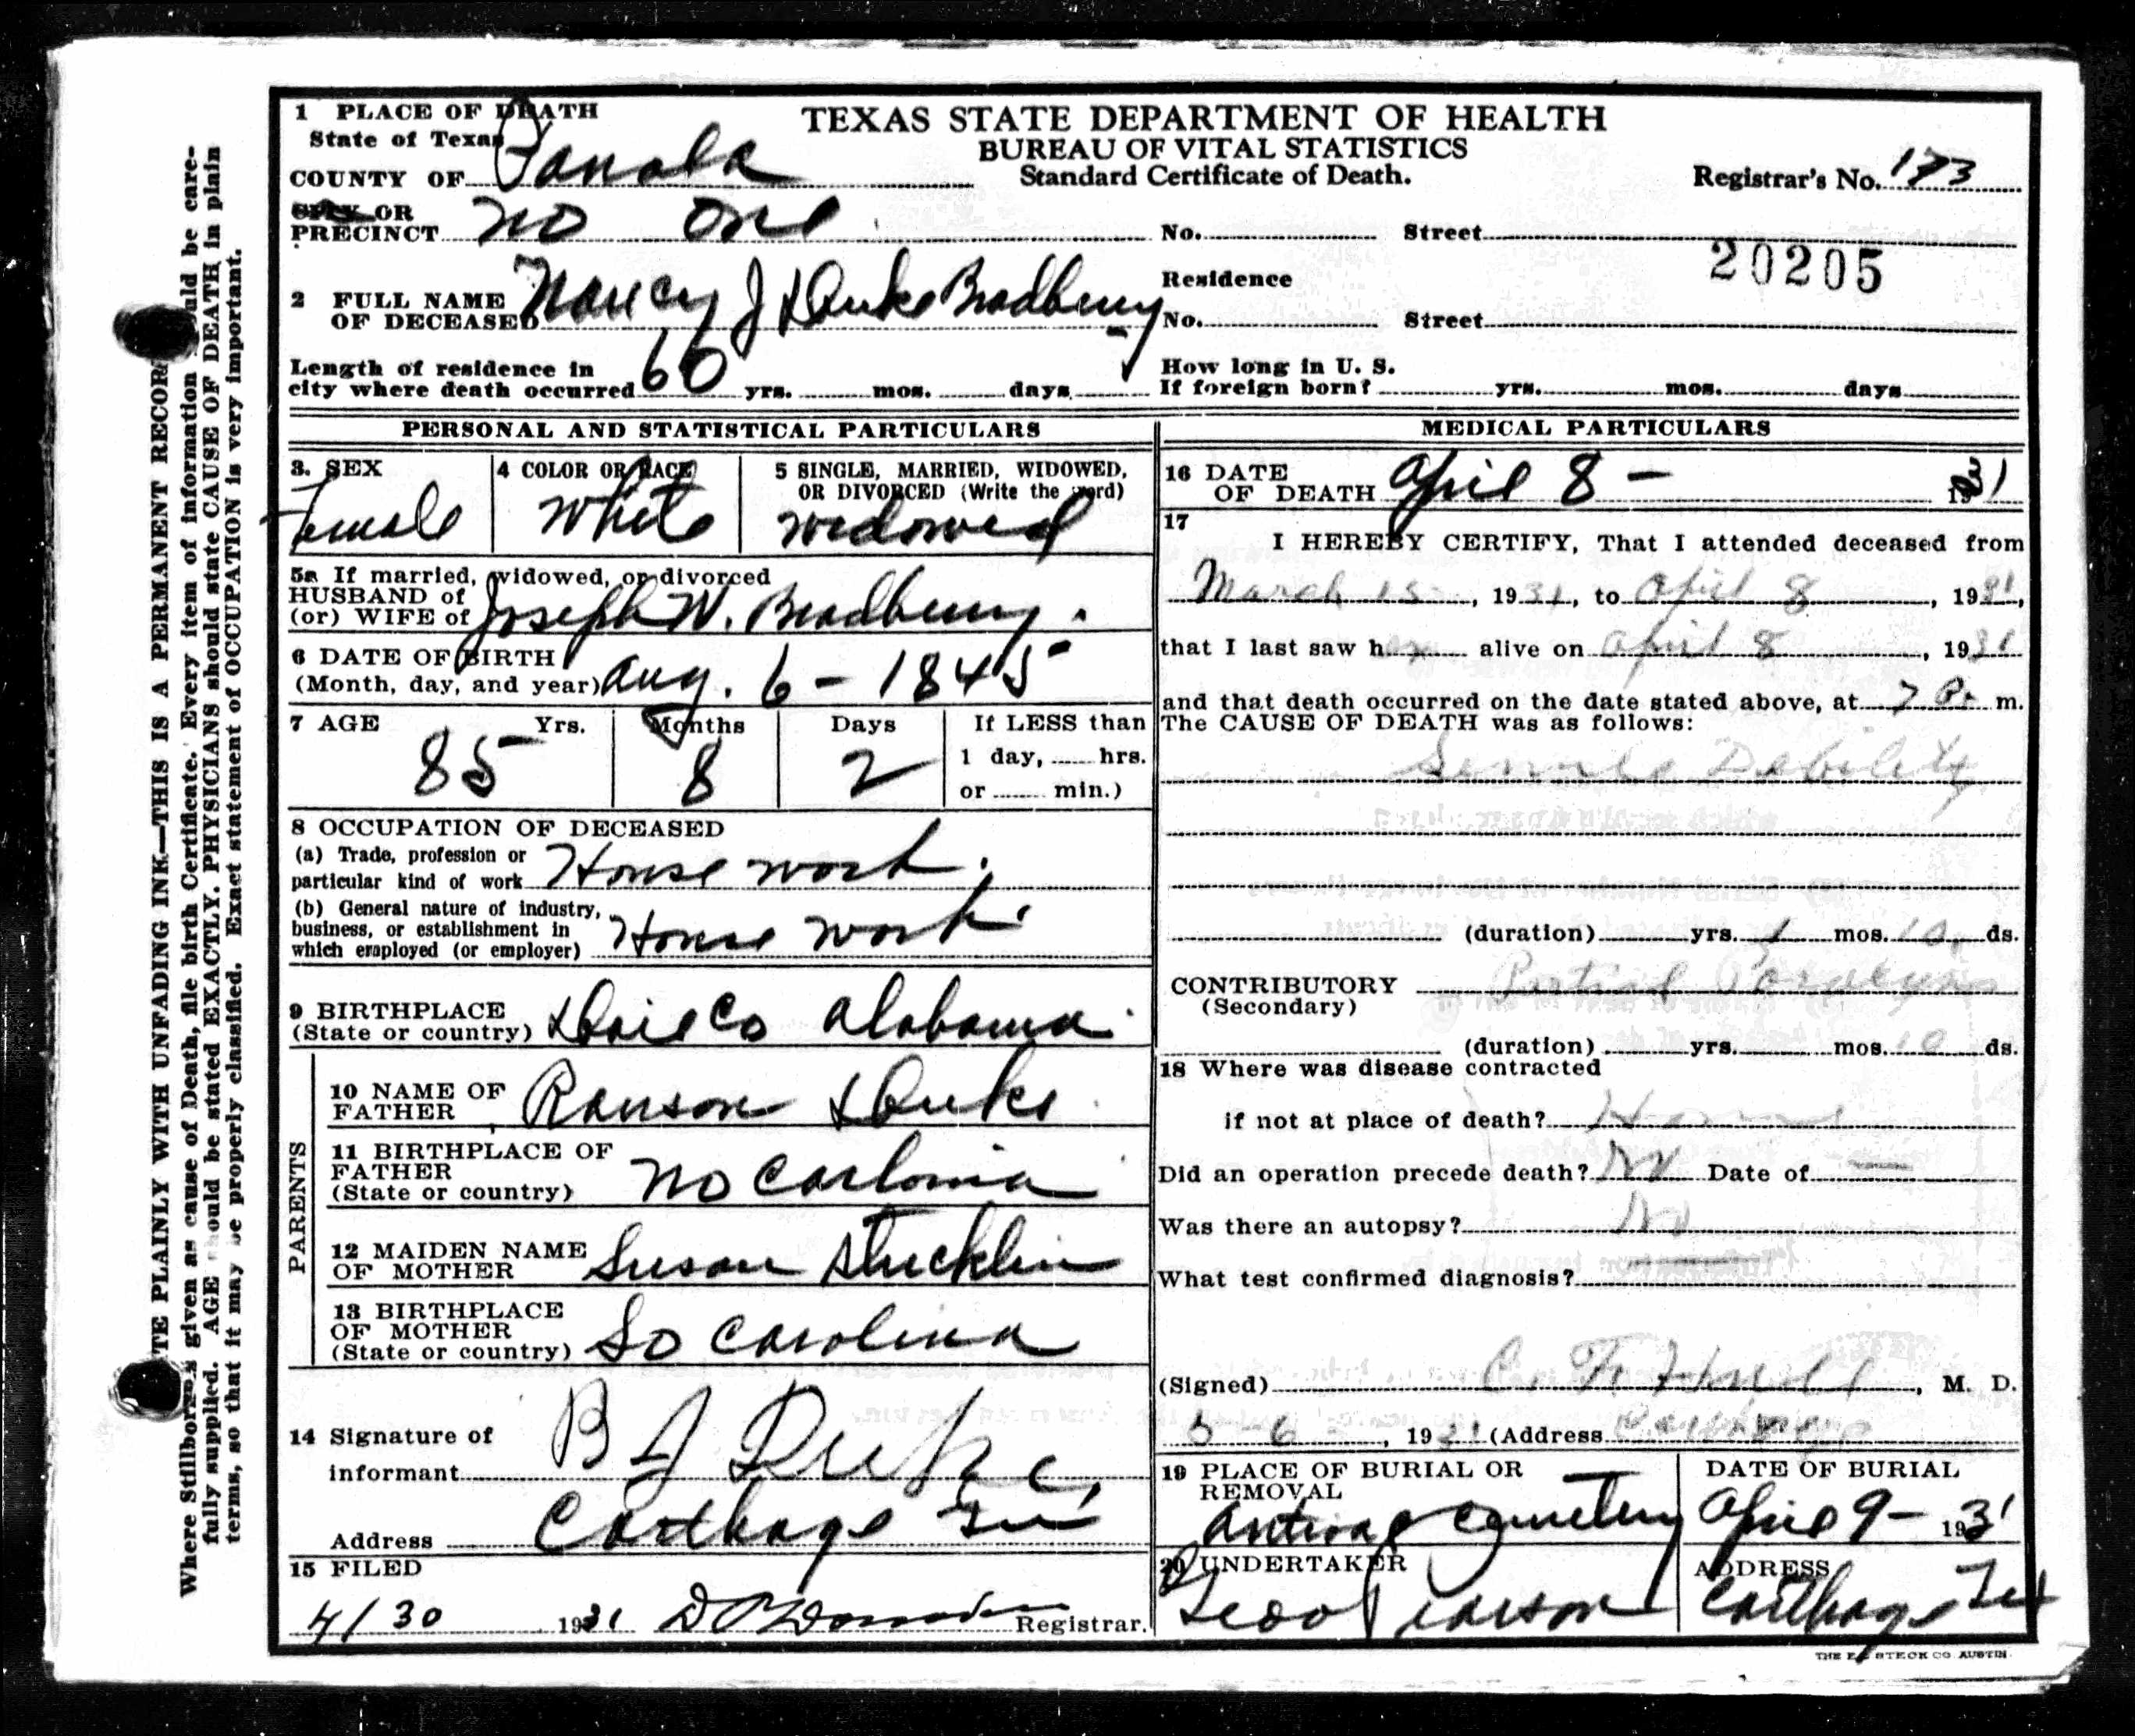 1 PLACE OF DEATH
State of Texas
COUNTY OF Panola
TEXAS STATE DEPARTMENT OF HEALTH
BUREAU OF VITAL STATISTICS
Standard Certificate of Death.
Registrar's No. 173
CITY OR
PRECINCT No One
No. Street
20205
2 FULL NAME
OF DECEASED Nancy J Duke Bradbury
Residence
No. Street
Length of residence in
city where death occurred 60 yrs. mos. days
How long in U. S.
If foreign born? yrs. mos. days
PERSONAL AND STATISTICAL PARTICULARS
3. SEX
Female
4 COLOR OR RACE
White
5 SINGLE, MARRIED, WIDOWED,
OR DIVORCED (Write the word)
widowed
5a If married, widowed, or divorced
HUSBAND of
(or) WIFE of Joseph W. Bradbury.
6 DATE OF BIRTH
(Month, day, and year) Aug. 6 - 1845
7 AGE Yrs. Months Days
85 8 2
If LESS than
1 day, hrs.
or min.)
8 OCCUPATION OF DECEASED
(a) Trade, profession or
particular kind of work House work.
(b) General nature of industry,
business, or establishment in
which employed (or employer) House work.
9 BIRTHPLACE
(State or country) Co Alabama
PARENTS
10 NAME OF
FATHER Ranson Duke
11 BIRTHPLACE OF
FATHER
(State or country) No Carlonia
12 MAIDEN NAME
OF MOTHER Susan Stricklin
13 BIRTHPLACE
OF MOTHER
(State or country) So Carolina
14 Signature of
informant B J Duke,
Address Carthage Tex
15 FILED
4/30 1931 Registrar.
MEDICAL PARTICULARS
16 DATE
OF DEATH April 8 - 1931
17
I HEREBY CERTIFY, That I attended deceased from
March 15, 1931, to April 8, 1931,
that I last saw her alive on April 8, 1931
and that death occurred on the date stated above, at 7 P. m.
The CAUSE OF DEATH was as follows:
Debility
(duration) yrs. 1 mos. 10 ds.
CONTRIBUTORY Partial
(Secondary)
(duration) yrs. mos. 10 ds.
18 Where was disease contracted
if not at place of death? Home
Did an operation precede death? No Date of —
Was there an autopsy? No
What test confirmed diagnosis?
(Signed) C. , M. D.
5-6, 1931 (Address Carthage
19 PLACE OF BURIAL OR
REMOVAL
Cemetery
DATE OF BURIAL
April 9 - 1931
20 UNDERTAKER
Pearson
ADDRESS
Carthage Tex
THE E. L. STECK CO. AUSTIN
TE PLAINLY WITH UNFADING INK—THIS IS A PERMANENT RECOR
Where Stillborn is given as cause of Death, file birth Certificate. Every item of information should be care-
fully supplied. AGE should be stated EXACTLY. PHYSICIANS should state CAUSE OF DEATH in plain
terms, so that it may be properly classified. Exact statement of OCCUPATION is very important.